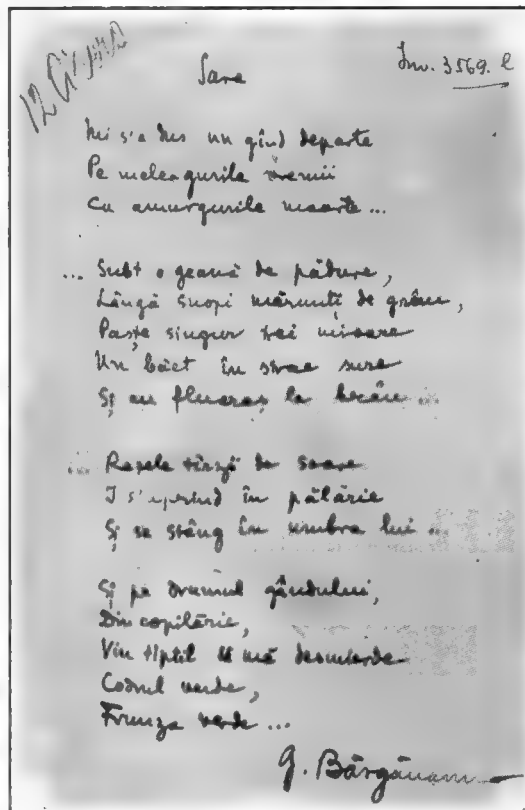 Inv. 3569. C
Sara
Mi s'a dus un gînd departe
Pe meleagurile vremii
Cu amurgurile moarte...
... Subt o geană de pădure,
Lângă snopi mărunți de grâu,
Paște singur trei mioare
Un băet în strae sure
Și cu fluieraș la brâu ...
... Razele tîrzii de soare
I s'aprind în pălărie
Și se stâng în umbra lui ...
Și pe drumul gândului,
Din copilărie,
Vin tiptil să mă desmierde
Codrul verde,
Frunza verde ...